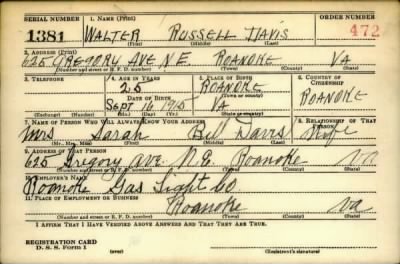 SERIAL NUMBER 1. NAME (Print) ORDER NUMBER
1381 WALTER RUSSELL DAVIS 472
(First) (Middle) (Last)
2. ADDRESS (Print)
625 GREGORY AVE N.E. ROANOKE VA
(Number and street or R. F. D. number) (Town) (County) (State)
3. TELEPHONE 4. AGE IN YEARS 5. PLACE OF BIRTH 6. COUNTRY OF CITIZENSHIP
25 ROANOKE
DATE OF BIRTH (Town or county)
SEPT 16 1915 VA ROANOKE
(Exchange) (Number) (Mo.) (Day) (Yr.) (State or country)
7. NAME OF PERSON WHO WILL ALWAYS KNOW YOUR ADDRESS 8. RELATIONSHIP OF THAT PERSON
Mrs Sarah Bell Davis Wife
(Mr., Mrs., Miss) (First) (Middle) (Last)
9. ADDRESS OF THAT PERSON
625 Gregory ave. N.E. Roanoke va
(Number and street or R. F. D. number) (Town) (County) (State)
10. EMPLOYER'S NAME
Roanoke Gas Light Co
11. PLACE OF EMPLOYMENT OR BUSINESS
Roanoke Va
(Number and street or R. F. D. number) (Town) (County) (State)
I AFFIRM THAT I HAVE VERIFIED ABOVE ANSWERS AND THAT THEY ARE TRUE.
REGISTRATION CARD
D. S. S. Form 1 (over) (Registrant's signature)